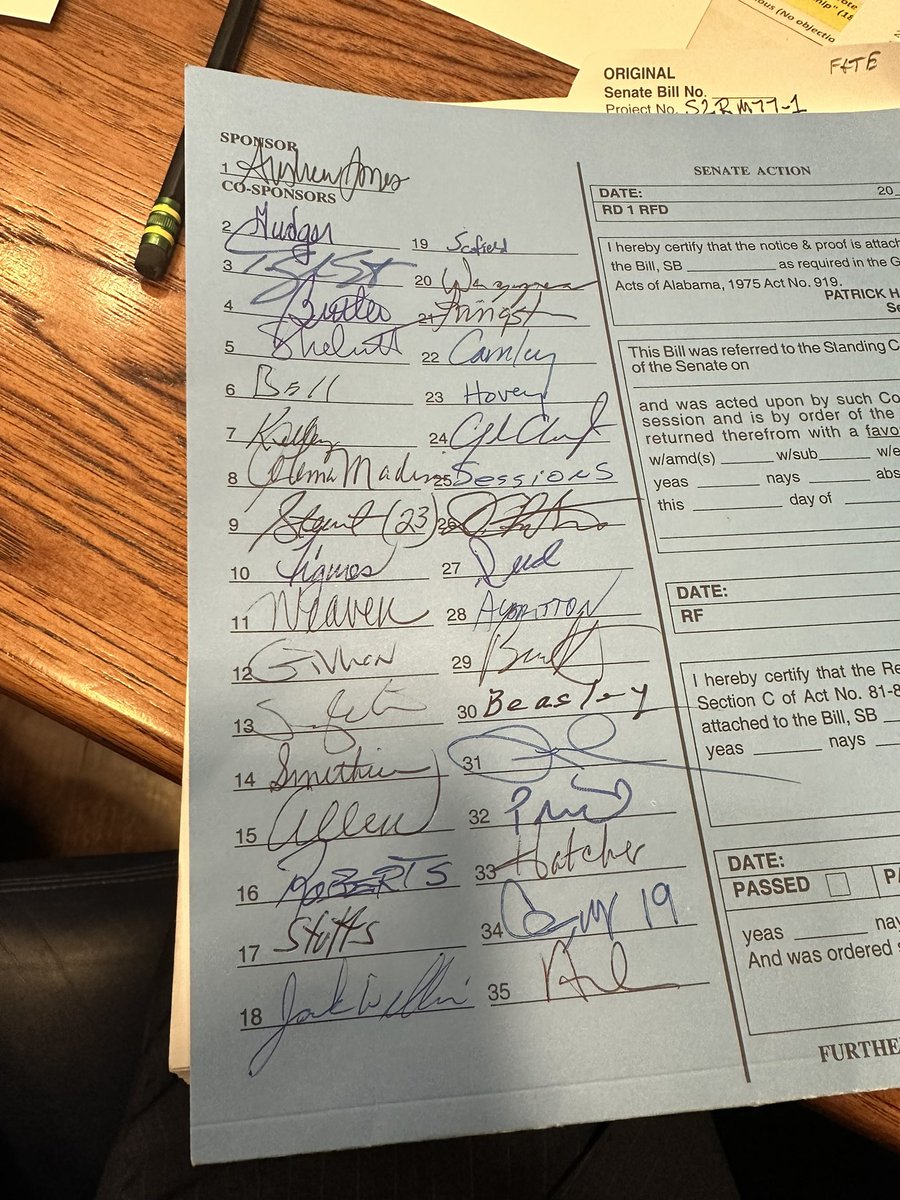 ORIGINAL
FATE
Senate Bill No.
Project No. S2RM77-1
SPONSOR
1 Andrew Jones
CO-SPONSORS
2 Gudger
3
4 Butler
5 Shelnutt
6 Bell
7 Kelley
8 Coleman Madison
9 Stewart (23)
10 Figures
11 Weaver
12 Givhan
13 Singleton
14 Smitherman
15 Allen
16 ROBERTS
17 Stutts
18 Jack Williams
19 Scofield
20 Waggoner
21 Livingston
22 Carnley
23 Hovey
24
25 SESSIONS
26
27 Reed
28 ALBRITTON
29
30 Beasley
31
32
33 Hatcher
34 19
35
SENATE ACTION
DATE: 20
RD 1 RFD
I hereby certify that the notice & proof is attach
the Bill, SB as required in the G
Acts of Alabama, 1975 Act No. 919.
PATRICK H
Se
This Bill was referred to the Standing C
of the Senate on
and was acted upon by such Co
session and is by order of the
returned therefrom with a favo
w/amd(s) w/sub w/e
yeas nays abs
this day of
DATE:
RF
I hereby certify that the Re
Section C of Act No. 81-8
attached to the Bill, SB
yeas nays
DATE:
PASSED PA
yeas nay
And was ordered
FURTHE